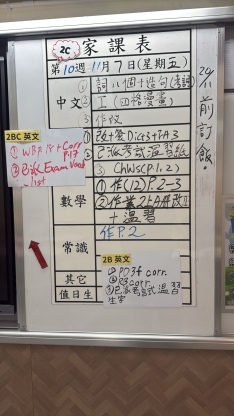 2C 家課表
第10週 11月7日(星期五)
中文 ① 詞八個+造句(考詞)
② 工(四格漫畫)
③ 作改
① 改+簽 Dict3+P.A3
② 已派考試溫習紙
③ ChWs(P.1, 2)
數學 ① 作(12)P.2-3
② 作業2+A冊改
+溫習
常識 作P.2
其它
值日生
2BC 英文
① WB P.18+Corr
P.17
② 已派 Exam Vocab
list
2B 英文
① P.034 corr.
③ 已派考試溫習
生字
20/11前訂飯!